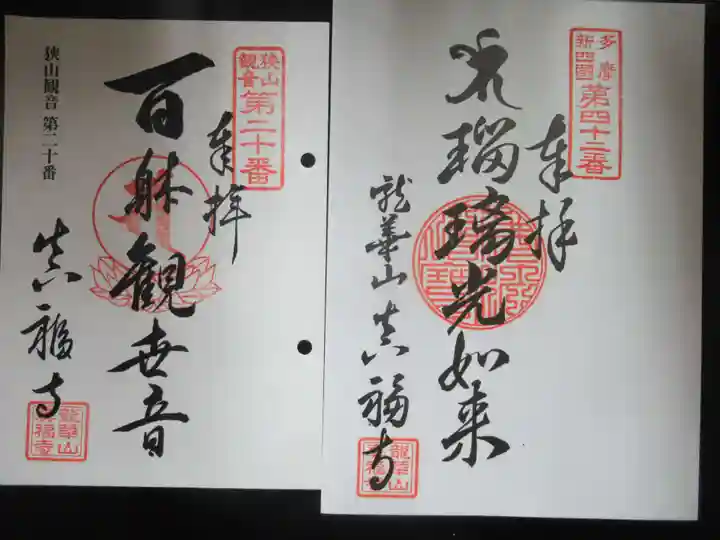 多摩
新四國
第四十二番
奉拝
瑠璃光如来
龍華山 真福寺
龍華山
真福寺
狭山
観音
第二十番
奉拝
百躰觀世音
狭山観音 第二十番
真福寺
龍華山
真福寺